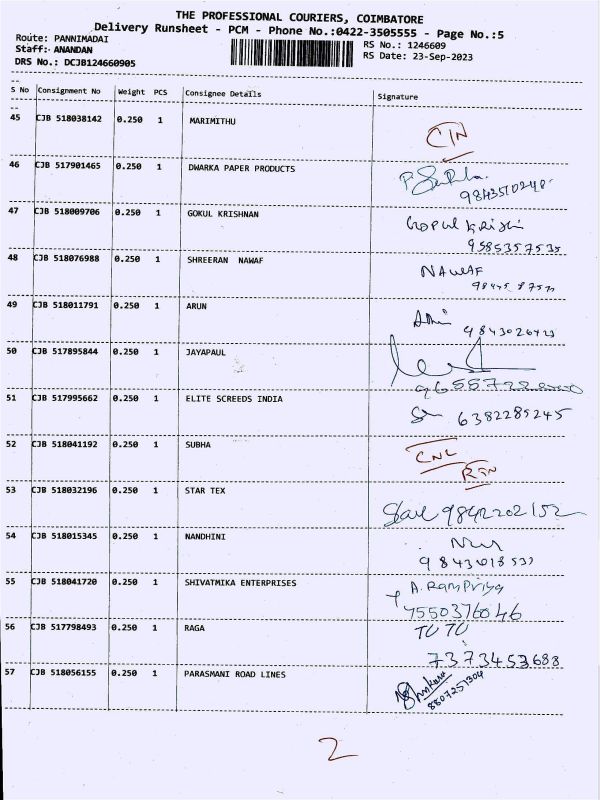 THE PROFESSIONAL COURIERS, COIMBATORE
Delivery Runsheet - PCM - Phone No.:0422-3505555 - Page No.:5
Route: PANNIMADAI RS No.: 1246609
Staff: ANANDAN RS Date: 23-Sep-2023
DRS No.: DCJB124660905
S No Consignment No Weight PCS Consignee Details Signature
45 CJB 518038142 0.250 1 MARIMITHU
46 CJB 517901465 0.250 1 DWARKA PAPER PRODUCTS
47 CJB 518009706 0.250 1 GOKUL KRISHNAN
9585357535
48 CJB 518076988 0.250 1 SHREERAN NAWAF NAWAF
49 CJB 518011791 0.250 1 ARUN
50 CJB 517895844 0.250 1 JAYAPAUL
51 CJB 517995662 0.250 1 ELITE SCREEDS INDIA 6382285245
52 CJB 518041192 0.250 1 SUBHA CNL
RTN
53 CJB 518032196 0.250 1 STAR TEX 9842202152
54 CJB 518015345 0.250 1 NANDHINI
55 CJB 518041720 0.250 1 SHIVATMIKA ENTERPRISES A. RamPriya
7550376046
56 CJB 517798493 0.250 1 RAGA
7373453688
57 CJB 518056155 0.250 1 PARASMANI ROAD LINES
8807251304
2